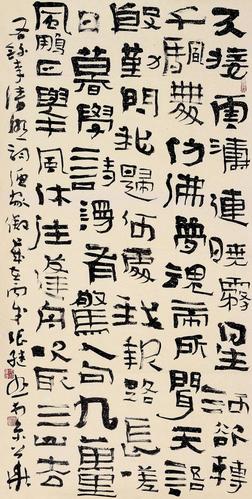 天接雲濤連曉霧星河欲轉
千帆舞仿佛夢魂帝所聞天語
殷勤問我歸何處我報路長嗟
日暮學詩謾有驚人句九萬里
風鵬正舉風休住蓬舟吹取三山去
錄李清照詞漁家傲歲在丙張繼於京華